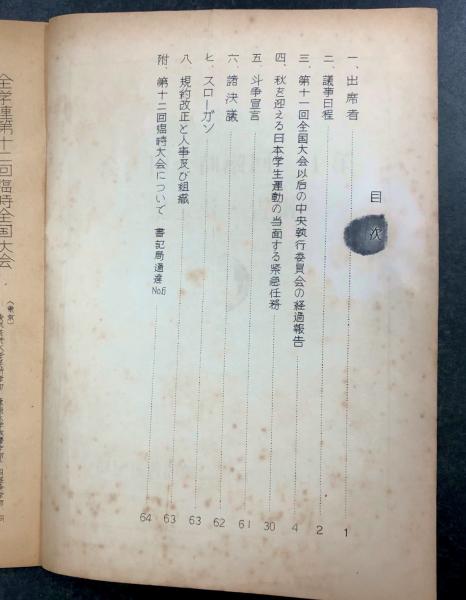 目次
一、出席者 1
二、議事日程 2
三、第十一回全国大会以后の中央執行委員会の経過報告 4
四、秋を迎える日本学生運動の当面する緊急任務 30
五、斗争宣言 61
六、諸決議 62
七、スローガン 63
八、規約改正と人事及び組織 63
附、第十二回臨時大会について 書記局通達No.6 64
全学連第十二回臨時全国大会
〈東京〉